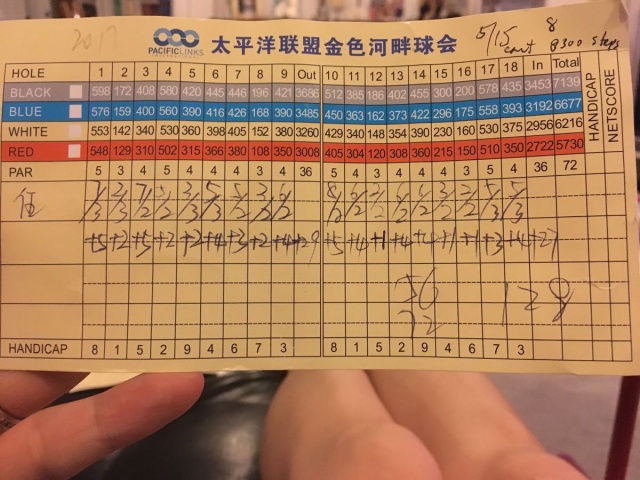 2017
PACIFICLINKS
INTERNATIONAL
太平洋联盟金色河畔球会
5/15
8
cart 8300 steps
HOLE 1 2 3 4 5 6 7 8 9 Out 10 11 12 13 14 15 16 17 18 In Total HANDICAP NETSCORE
BLACK 598 172 408 580 420 445 446 196 421 3686 512 385 186 402 455 300 200 578 435 3453 7139
BLUE 576 159 400 560 390 416 426 168 390 3485 450 363 162 373 422 296 175 558 393 3192 6677
WHITE 553 142 340 530 360 398 405 152 380 3260 429 340 148 354 390 230 160 530 375 2956 6216
RED 548 129 310 502 315 366 380 108 350 3008 405 304 120 308 360 215 150 510 350 2722 5730
PAR 5 3 4 5 4 4 4 3 4 36 5 4 3 4 4 4 3 5 4 36 72
+5 +2 +5 +2 +2 +4 +3 +2 +4 +29 +5 +4 +1 +4 +4 +1 +1 +3 +4 +27
56
72
128
HANDICAP 8 1 5 2 9 4 6 7 3 8 1 5 2 9 4 6 7 3